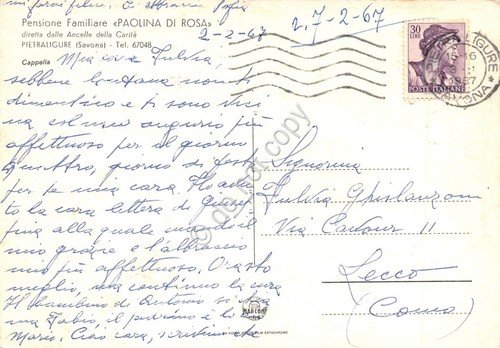 mi farai felice. Ti abbraccio Papà
Pensione Familiare «PAOLINA DI ROSA»
diretta dalle Ancelle della Carità
PIETRALIGURE (Savona) - Tel. 67048
Cappella
2-2-67
2.7-2-67
Mia cara Fulvia,
sebbene lontana non ti
dimentico e ti sono vici
na col mio augurio più
affettuoso per il giorno
quattro, giorno di festa
per te mia cara. Ho avuto
to la cara lettera di
alla quale mando il
mio grazie e l'abbraccio
mio più affettuoso. Io sto
meglio, ma continuo la cura
Il bambino di Antonio si chia
ma Fabio, il padrino è lo
Mario. Ciao cara, scrivimi che
30
LIRE
POSTE ITALIANE
LIGURE
16
1967
Signorina
Fulvia Ghislanzoni
Via Cavour 11
Lecco
(Como)
MARCONI
delcook copy